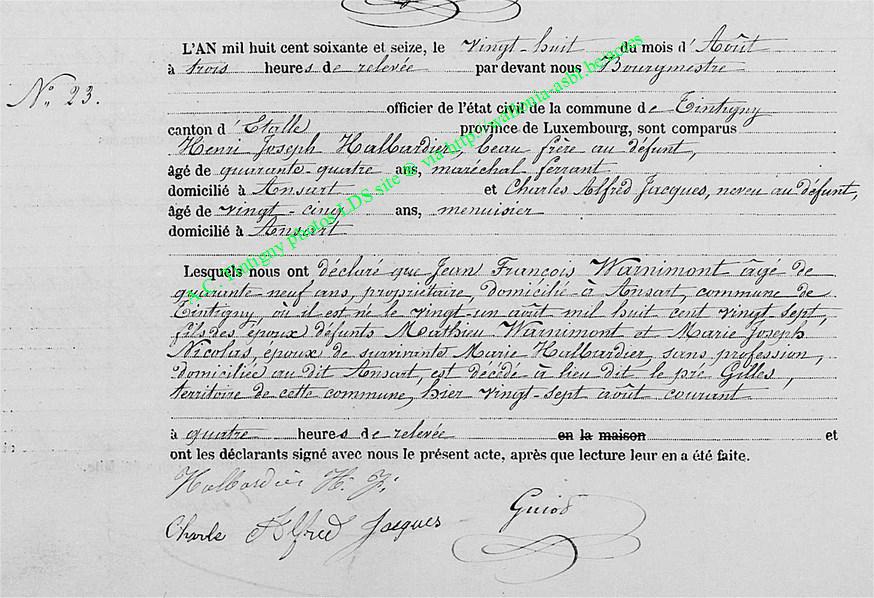 L'AN mil huit cent soixante et seize, le Vingt-huit du mois d'Août
à trois heures de relevée par devant nous Bourgmestre
N° 23.
officier de l'état civil de la commune de Tintigny
canton d'Etalle province de Luxembourg, sont comparus
Henri Joseph Halbardier, beau frère au défunt,
âgé de quarante quatre ans, maréchal ferrant
domicilié à Ansart et Charles Alfred Jacques, neveu au défunt,
âgé de vingt-cinq ans, menuisier
domicilié à Ansart
Lesquels nous ont déclaré que Jean François Warnimont âgé de
quarante neuf ans, propriétaire, domicilié à Ansart, commune de
Tintigny, où il est né le vingt-un août mil huit cent vingt sept,
fils des époux défunts Mathieu Warnimont et Marie Joseph
Nicolas, époux de survivante Marie Halbardier, sans profession,
domiciliée au dit Ansart, est décédé à lieu dit le pré Gilles,
territoire de cette commune, hier vingt-sept août courant
à quatre heures de relevée en la maison et
ont les déclarants signé avec nous le présent acte, après que lecture leur en a été faite.
Halbardier H. J.
Charle Alfred Jacques
Guiot
A.C. Tintigny photos LDS site © via http://wallonia-asbl.be/actes